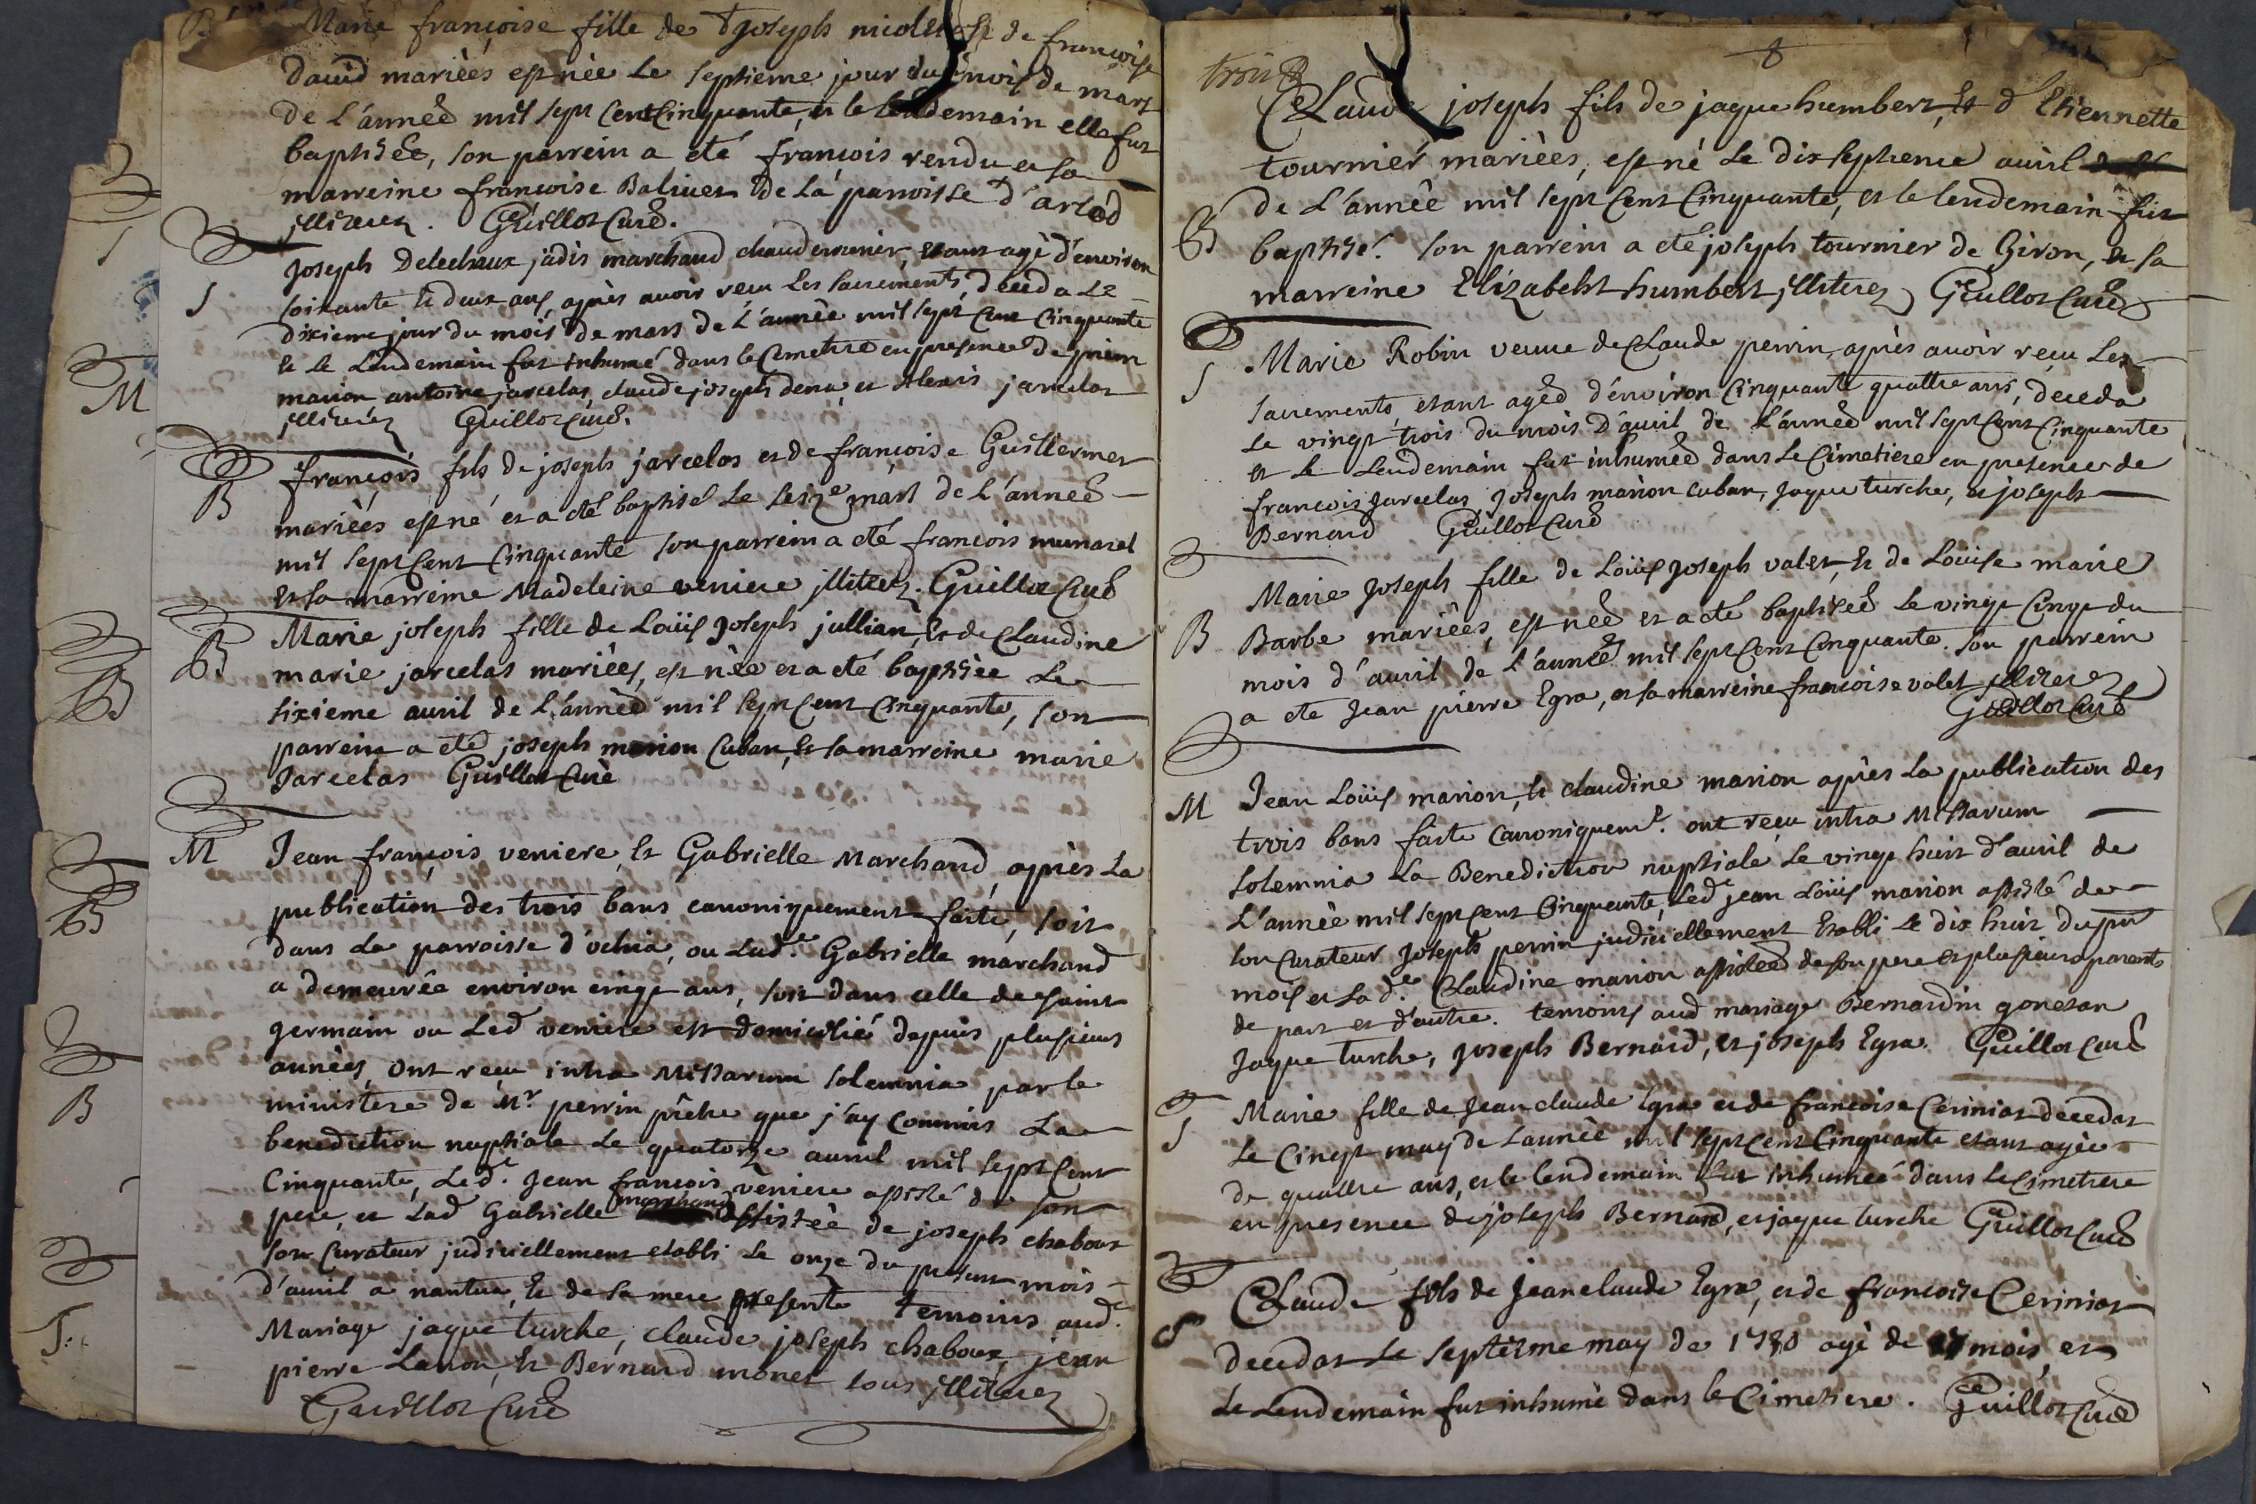 B Marie françoise fille de joseph et de françoise
david mariées est née le septieme jour du mois de mars
de l'année mil sept cent Cinquante, et le lendemain elle fut
baptisée, son parrein a eté françois rendu et sa
marreine francoise Balivet de la parroisse d'arlod
illiterez. Guillot Curé.
S
joseph Delechaux jadis marchand chauderonier, etant agé d'environ
soixante et deux ans après avoir recu les sacrements deceda le
dixieme jour du mois de mars de l'année mil sept cent cinquante
et le lendemain fut inhumé dans le Cimetiere en presence de
marion antoine jarcelas, claude joseph et Alexis jarcelas
illiterez Guillot Curé.
B françois fils de joseph jarcelas et de françoise Guillermet
mariées est né et a eté baptisé le seize mars de l'année
mil sept Cent Cinquante son parrein a eté francois munaret
et sa marreine Madeleine veniere illiterez. Guillot Curé
B Marie joseph fille de Loüis joseph jullian et de Claudine
marie jarcelas mariées, est née et a eté baptisée le
sixieme avril de l'année mil sept cent Cinquante, son
parrein a eté joseph marion Cuban, et sa marreine marie
Jarcelas Guillot Curé
M Jean françois veniere et Gabrielle Marchand, après la
publication des trois bans canoniquement faite, soit
dans la parroisse d'ochia, ou Lad.e Gabrielle marchand
a demeurée environ cinqt ans, soit dans celle de saint
germain ou Led veniere est domicilié depuis plusieurs
années, ont recu intra Missarum solemnia par le
ministere de Mr perrin prêtre que j'ay Commis La
benediction nuptiale Le quatorze avril mil sept Cent
Cinquante, Led.t Jean françois veniere assisté de son
pere, et Lad Gabrielle marchand assistée de joseph chaboux
son Curateur judiciellement etabli le onze du present mois
d'avril a nantua, et de sa mere presente temoins aud.t
Mariage jaque turche, claude joseph chaboux, jean
pierre Lanon, et Bernard monet tous illiterez
Guillot Curé
trois 8
Claude joseph fils de jaque humbert, et d'Etiennette
tournier mariées, est né le dix septieme avril
de L'année mil sept Cent Cinquante, et le lendemain fut
B baptisé. son parrein a eté joseph tournier de Giron, et sa
marreine Elizabeht humbert illiterez Guillot Curé
S Marie Robin veuve de Claude perrin, après avoir recu les
sacrements, etant agée d'environ Cinquante quattre ans, deceda
le vingt trois du mois d'avril de l'année mil sept Cent Cinquante
et le Lendemain fut inhumée dans le Cimetiere en presence de
francois Jarcelas, Joseph marion cuban, Jaque turche, et joseph
Bernard Guillot Curé
Marie Joseph fille de Loüis Joseph valet, et de Loüise marie
B Barbe mariées, est née et a eté baptisée le vingt Cinqt du
mois d'avril de l'année mil sept Cent Cinquante. son parrein
a ete Jean pierre Egra, et sa marreine francoise valet illiterez
Guillot Curé
M Jean Loüis marion, et claudine marion après la publication des
trois bans faite canoniquemt. ont recu intra Missarum
solemnia La Benediction nuptiale le vingt huit d'avril de
L'année mil sept cent Cinquante, Led.t jean Loüis marion assisté de
son Curateur Joseph perrin judiciellement Etabli le dix huit du pnt
mois et La d.e Claudine marion assistée de son pere et plusieurs parents
de part et d'autre. temoins aud mariage Bernardin gonetan
Jaque turche, Joseph Bernard, et joseph Egra. Guillot Curé
S Marie fille de Jean claude Egra et de francoise Ceriniat decedat
Le Cinqt may de Lannée mil sept cent Cinquante etant agée
de quattre ans, et le lendemain fut inhumée dans le Cimetiere
en presence de joseph Bernard, et jaque turche Guillot Curé
S Claude fils de Jean claude Egra, et de francoise Ceriniat
decedat Le septieme may de 1750 agé de mois, et
Le Lendemain fut inhumé dans le Cimetiere. Guillot Curé
M
B
B
B